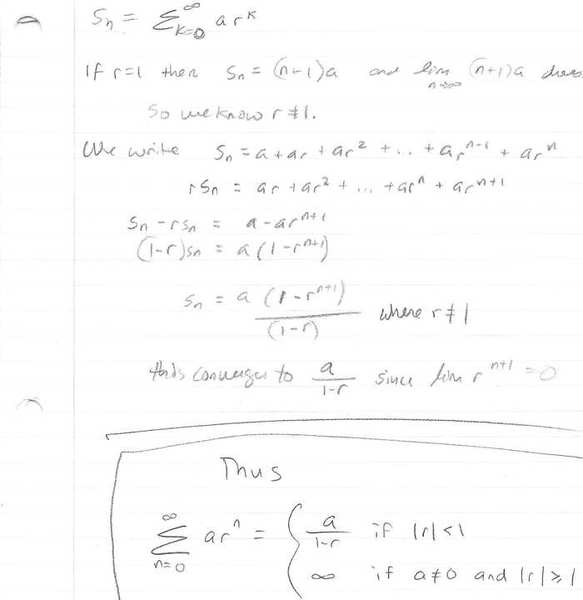 Sn = Σ_{k=0}^{∞} a r^k
If r=1 then Sn = (n+1)a and lim_{n→∞} (n+1)a
So we know r ≠ 1.
We write Sn = a + ar + ar² + ... + ar^{n-1} + ar^n
rSn = ar + ar² + ... + ar^n + ar^{n+1}
Sn - rsn = a - ar^{n+1}
(1-r)sn = a(1-r^{n+1})
Sn = a (1-r^{n+1}) / (1-r) where r ≠ 1
this converges to a/(1-r) since lim r^{n+1} = 0
Thus
Σ_{n=0}^{∞} ar^n = { a/(1-r) if |r|<1
∞ if a≠0 and |r|≥1